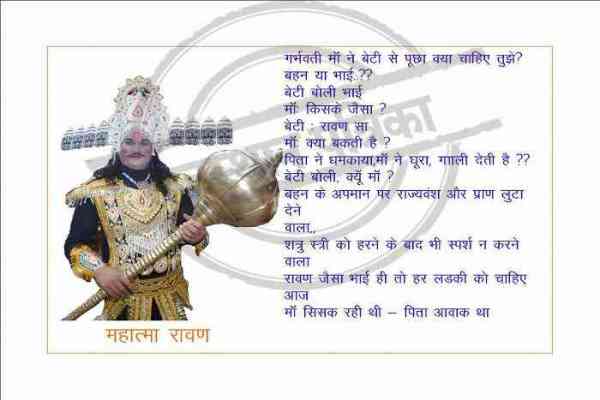 गर्भवती माँ ने बेटी से पूछा क्या चाहिए तुझे?
बहन या भाई..??
बेटी बोली भाई
माँ: किसके जैसा ?
बेटी : रावण सा
माँ: क्या बकती है ?
पिता ने धमकाया,माँ ने घूरा, गााली देती है ??
बेटी बोली, क्यूँ माँ ?
बहन के अपमान पर राज्यवंश और प्राण लुटा
देने
वाला,,
शत्रु स्त्री को हरने के बाद भी स्पर्श न करने
वाला
रावण जैसा भाई ही तो हर लडकी को चाहिए
आज
माँ सिसक रही थी – पिता आवाक था
महात्मा रावण